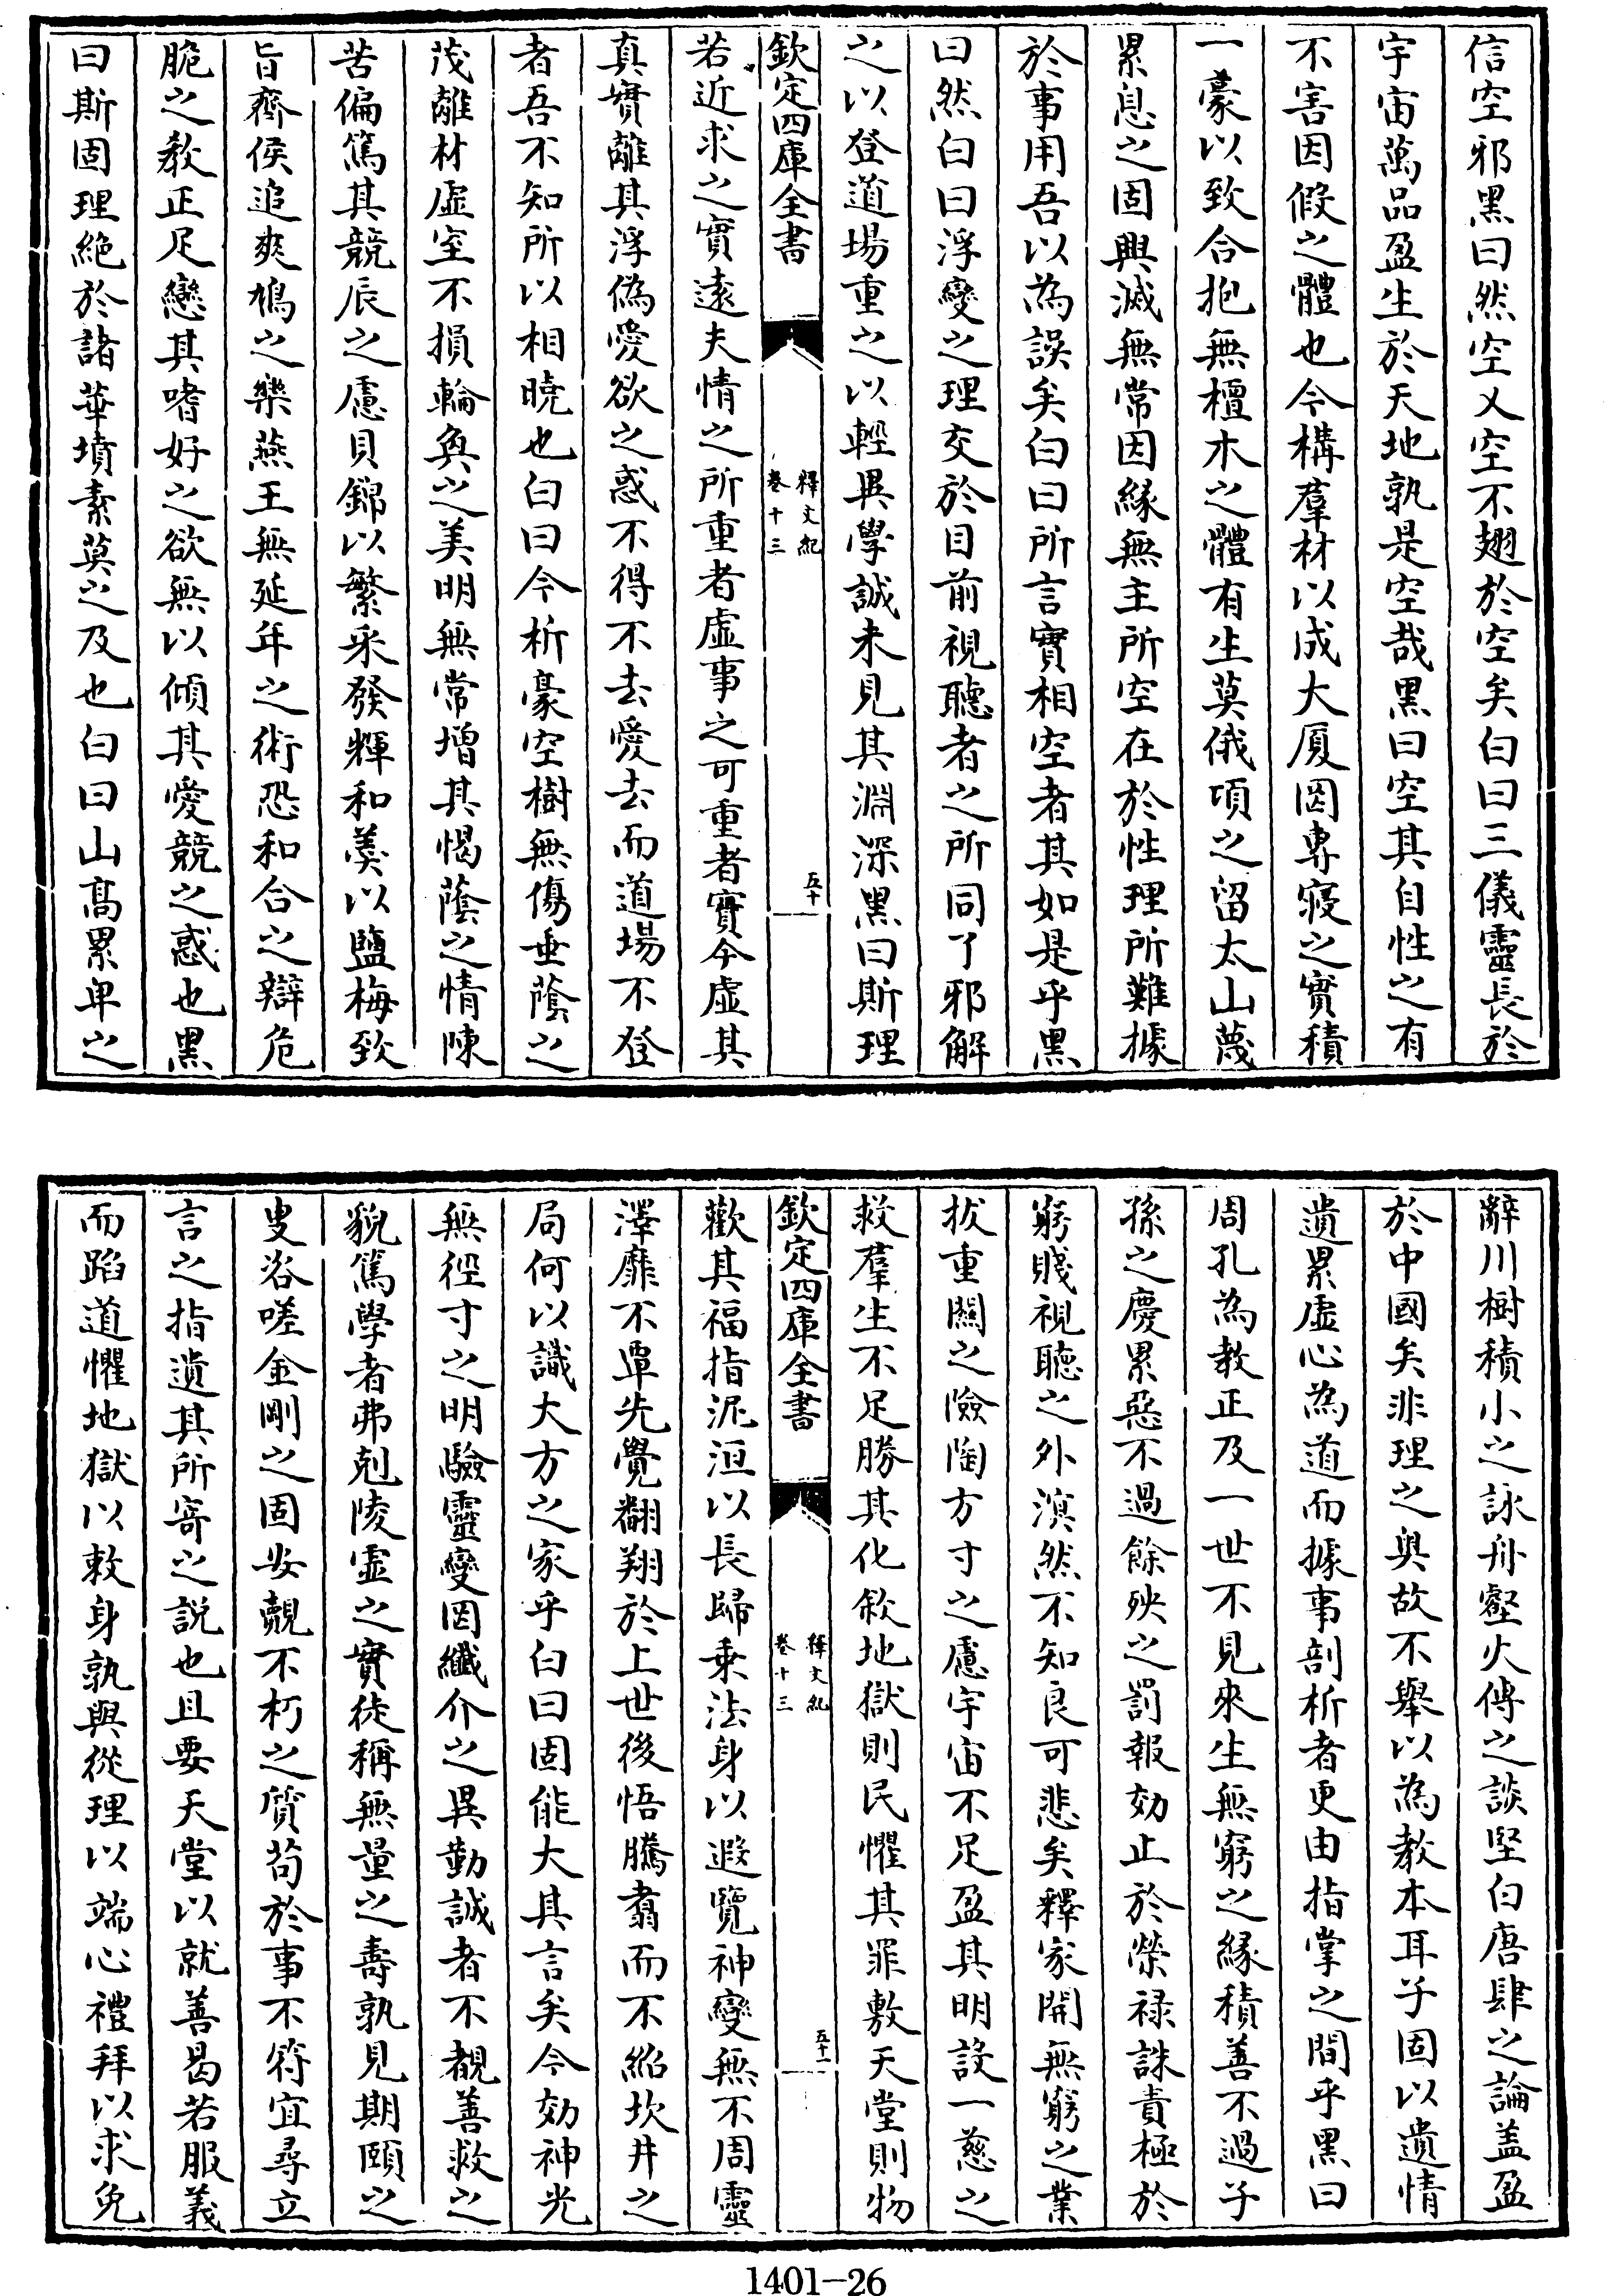 信空邪黑曰然空又空不翅於空矣白曰三儀靈長於
宇宙萬品盈生於天地孰是空哉黑曰空其自性之有
不害因假之體也今構羣材以成大厦罔專寢之實積
一豪以致合抱無檀木之體有生莫俄項之留太山蔑
累息之固興滅無常因緣無主所空在於性理所難據
於事用吾以為誤矣白曰所言實相空者其如是乎黑
曰然白曰浮變之理交於目前視聽者之所同了邪解
之以登道場重之以輕異學誠未見其淵深黑曰斯理
欽定四庫全書
釋文紀
卷十三
五十
若近求之實遠夫情之所重者虛事之可重者實今虛其
真實離其浮偽愛欲之惑不得不去愛去而道場不登
者吾不知所以相曉也白曰今析豪空樹無傷垂蔭之
茂離材虛室不損輪奐之美明無常增其愒蔭之情陳
苦偏篤其競辰之慮貝錦以繁采發輝和羮以鹽梅致
旨齊侯追爽鳩之樂燕王無延年之術恐和合之辯危
脆之教正足戀其嗜好之欲無以傾其愛競之惑也黑
曰斯固理絶於諸華墳素莫之及也白曰山髙累卑之
辭川樹積小之詠舟壑火傳之談堅白唐肆之論盖盈
於中國矣非理之奥故不舉以為教本耳子固以遺情
遺累虛心為道而據事剖析者更由指掌之間乎黑曰
周孔為教正及一世不見來生無窮之緣積善不過子
孫之慶累惡不過餘殃之罰報効止於榮祿誅責極於
窮賤視聽之外溟然不知良可悲矣釋家開無窮之業
拔重關之險陶方寸之慮宇宙不足盈其明設一慈之
救羣生不足勝其化敘地獄則民懼其罪敷天堂則物
欽定四庫全書
釋文紀
卷十三
五十一
歡其福指泥洹以長歸乗法身以遐覽神變無不周靈
澤靡不覃先覺翻翔於上世後悟騰翥而不紹坎井之
局何以識大方之家乎白曰固能大其言矣今効神光
無徑寸之明驗靈變罔纖介之異勤誠者不覩善救之
貌篤學者弗剋陵虛之實徒稱無量之壽孰見期頤之
叟洛嗟金剛之固安覿不朽之質苟於事不符宜尋立
言之指遺其所寄之說也且要天堂以就善曷若服義
而蹈道懼地獄以敕身孰與從理以端心禮拜以求免
1401-26